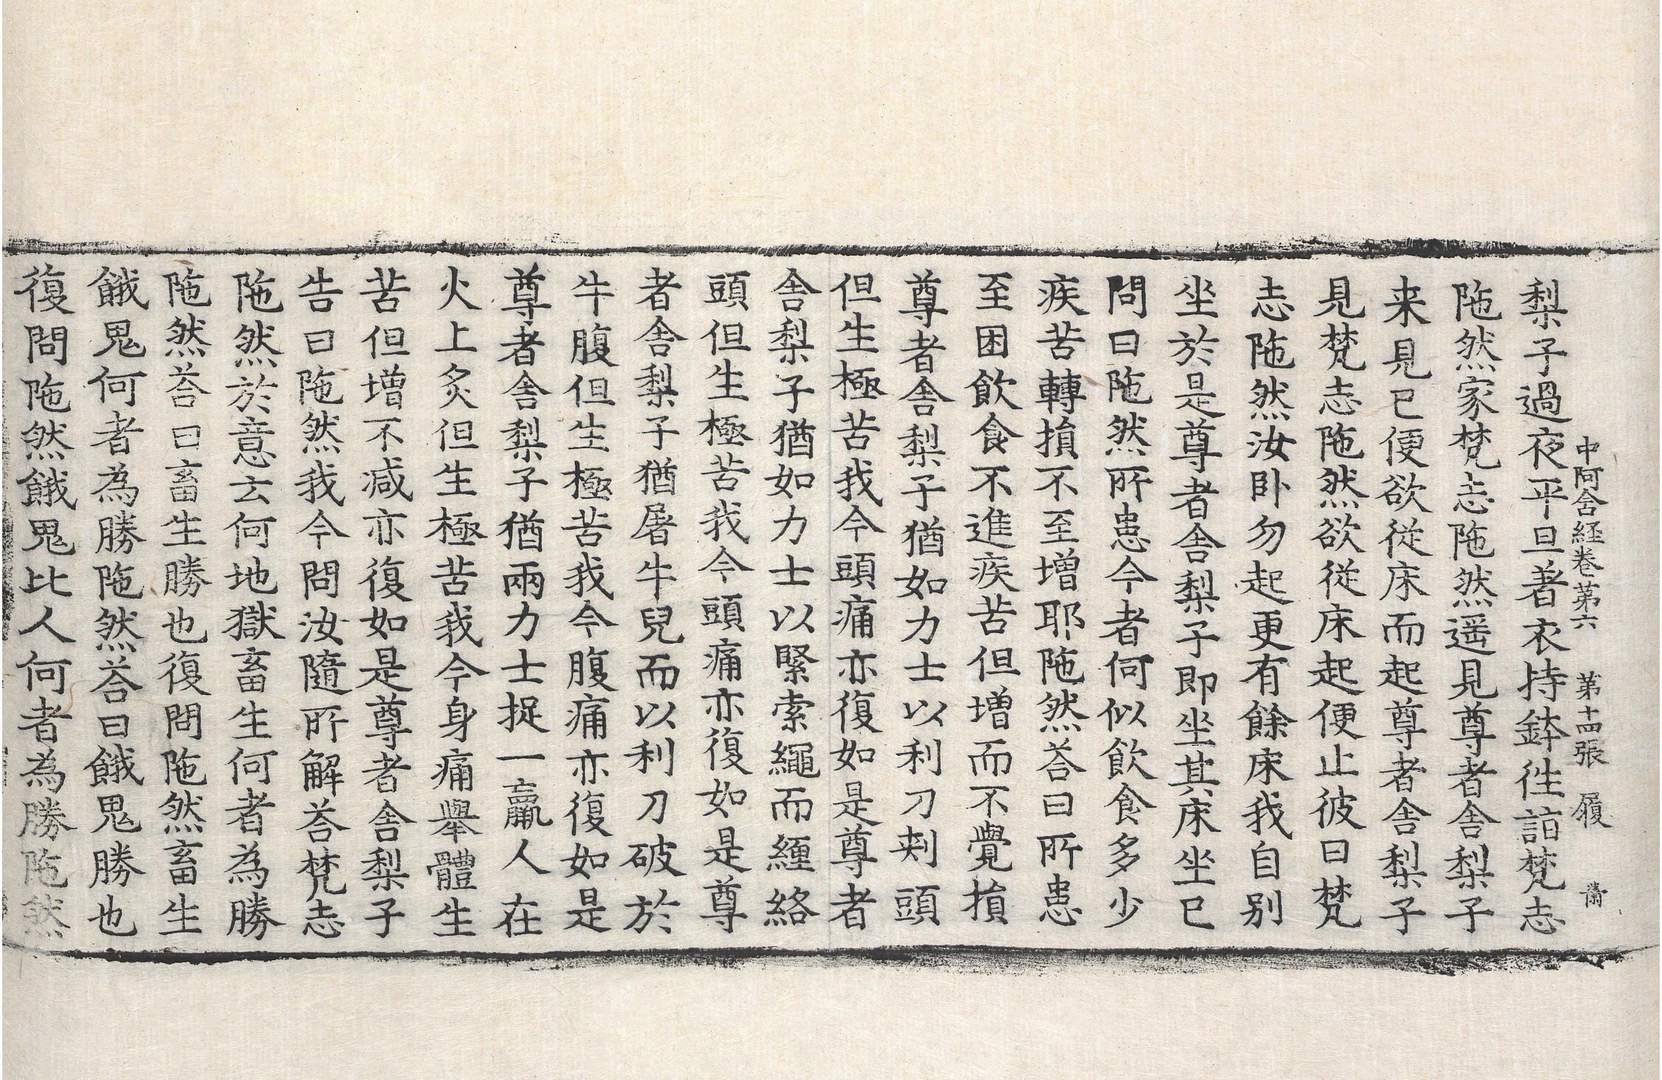 中阿含經卷第六 第十四張 履
梨子過夜平旦著衣持鉢往詣梵志
陁然家梵志陁然遥見尊者舎梨子
来見已便欲從床而起尊者舎梨子
見梵志陁然欲從床起便止彼曰梵
志陁然汝卧勿起更有餘床我自别
坐於是尊者舎梨子即坐其床坐已
問曰陁然所患今者何似飲食多少
疾苦轉損不至增耶陁然荅曰所患
至困飲食不進疾苦但增而不覺損
尊者舎梨子猶如力士以利刀刾頭
但生極苦我今頭痛亦復如是尊者
舎梨子猶如力士以緊索繩而纏絡
頭但生極苦我今頭痛亦復如是尊
者舎梨子猶屠牛兒而以利刀破於
牛腹但生極苦我今腹痛亦復如是
尊者舎梨子猶兩力士捉一羸人在
火上炙但生極苦我今身痛舉體生
苦但增不减亦復如是尊者舎梨子
告曰陁然我今問汝隨所解荅梵志
陁然於意云何地獄畜生何者為勝
陁然荅曰畜生勝也復問陁然畜生
餓鬼何者為勝陁然荅曰餓鬼勝也
復問陁然餓鬼比人何者為勝陁然